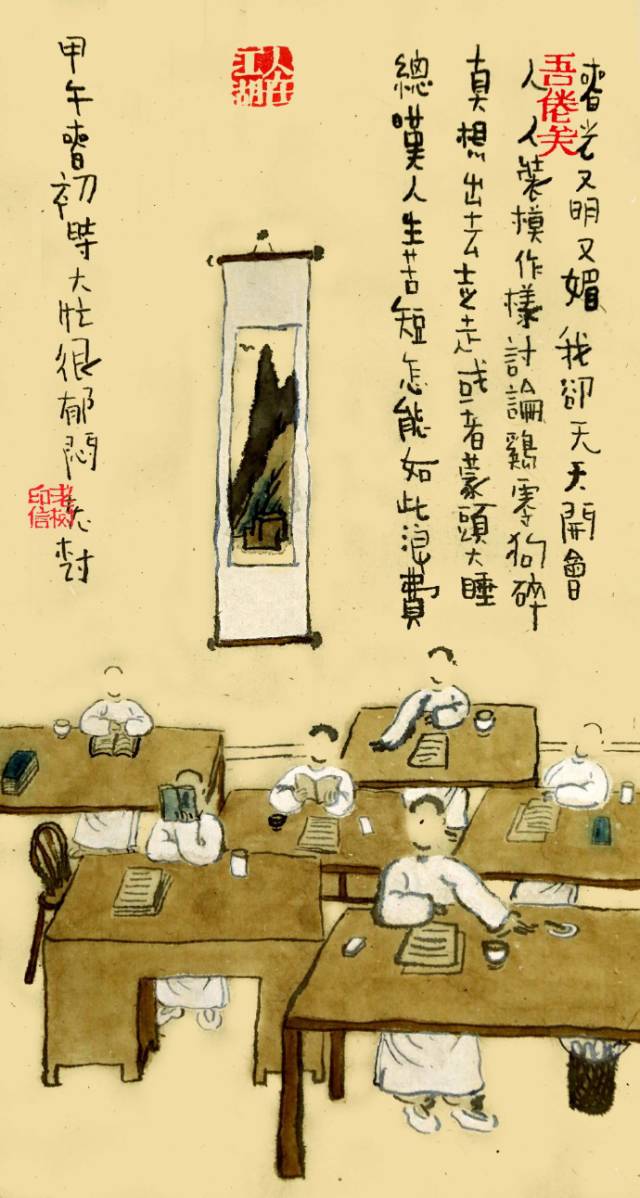 吾倦矣
春光又明又媚 我卻天天開會
人人裝模作樣 討論鷄零狗碎
真想出去走走 或者蒙頭大睡
總嘆人生苦短 怎能如此浪費
人在江湖
甲午春初時大壯很郁悶 老树
老树印信